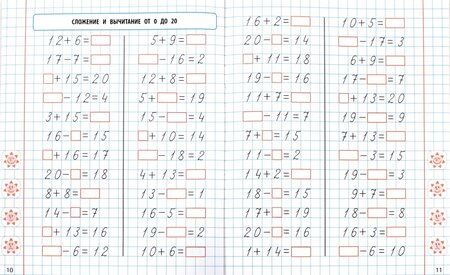 СЛОЖЕНИЕ И ВЫЧИТАНИЕ ОТ 0 ДО 20
12+6=□
17-7=□
□+15=20
□-12=4
3+15=□
16-□=15
□+16=17
20-□=18
8+8=□
14-□=7
□-6=12
5+9=□
□-16=2
12+8=□
5+□=19
15-□=4
□+10=14
□-18=2
4+13=□
13-□=1
16-5=□
19-□=2
10+6=□
10
16+2=□
20-□=14
□+11=18
19-□=16
11+7=□
□-11=7
7+□=15
11-□=2
14+2=□
18-□=15
17+□=19
20-□=16
1+14=□
10+5=□
□-17=3
6+9=□
17-□=7
□+13=20
19-□=9
7+13=□
□-3=15
19-□=3
9+7=□
18-□=8
□+3=16
□-6=10
11